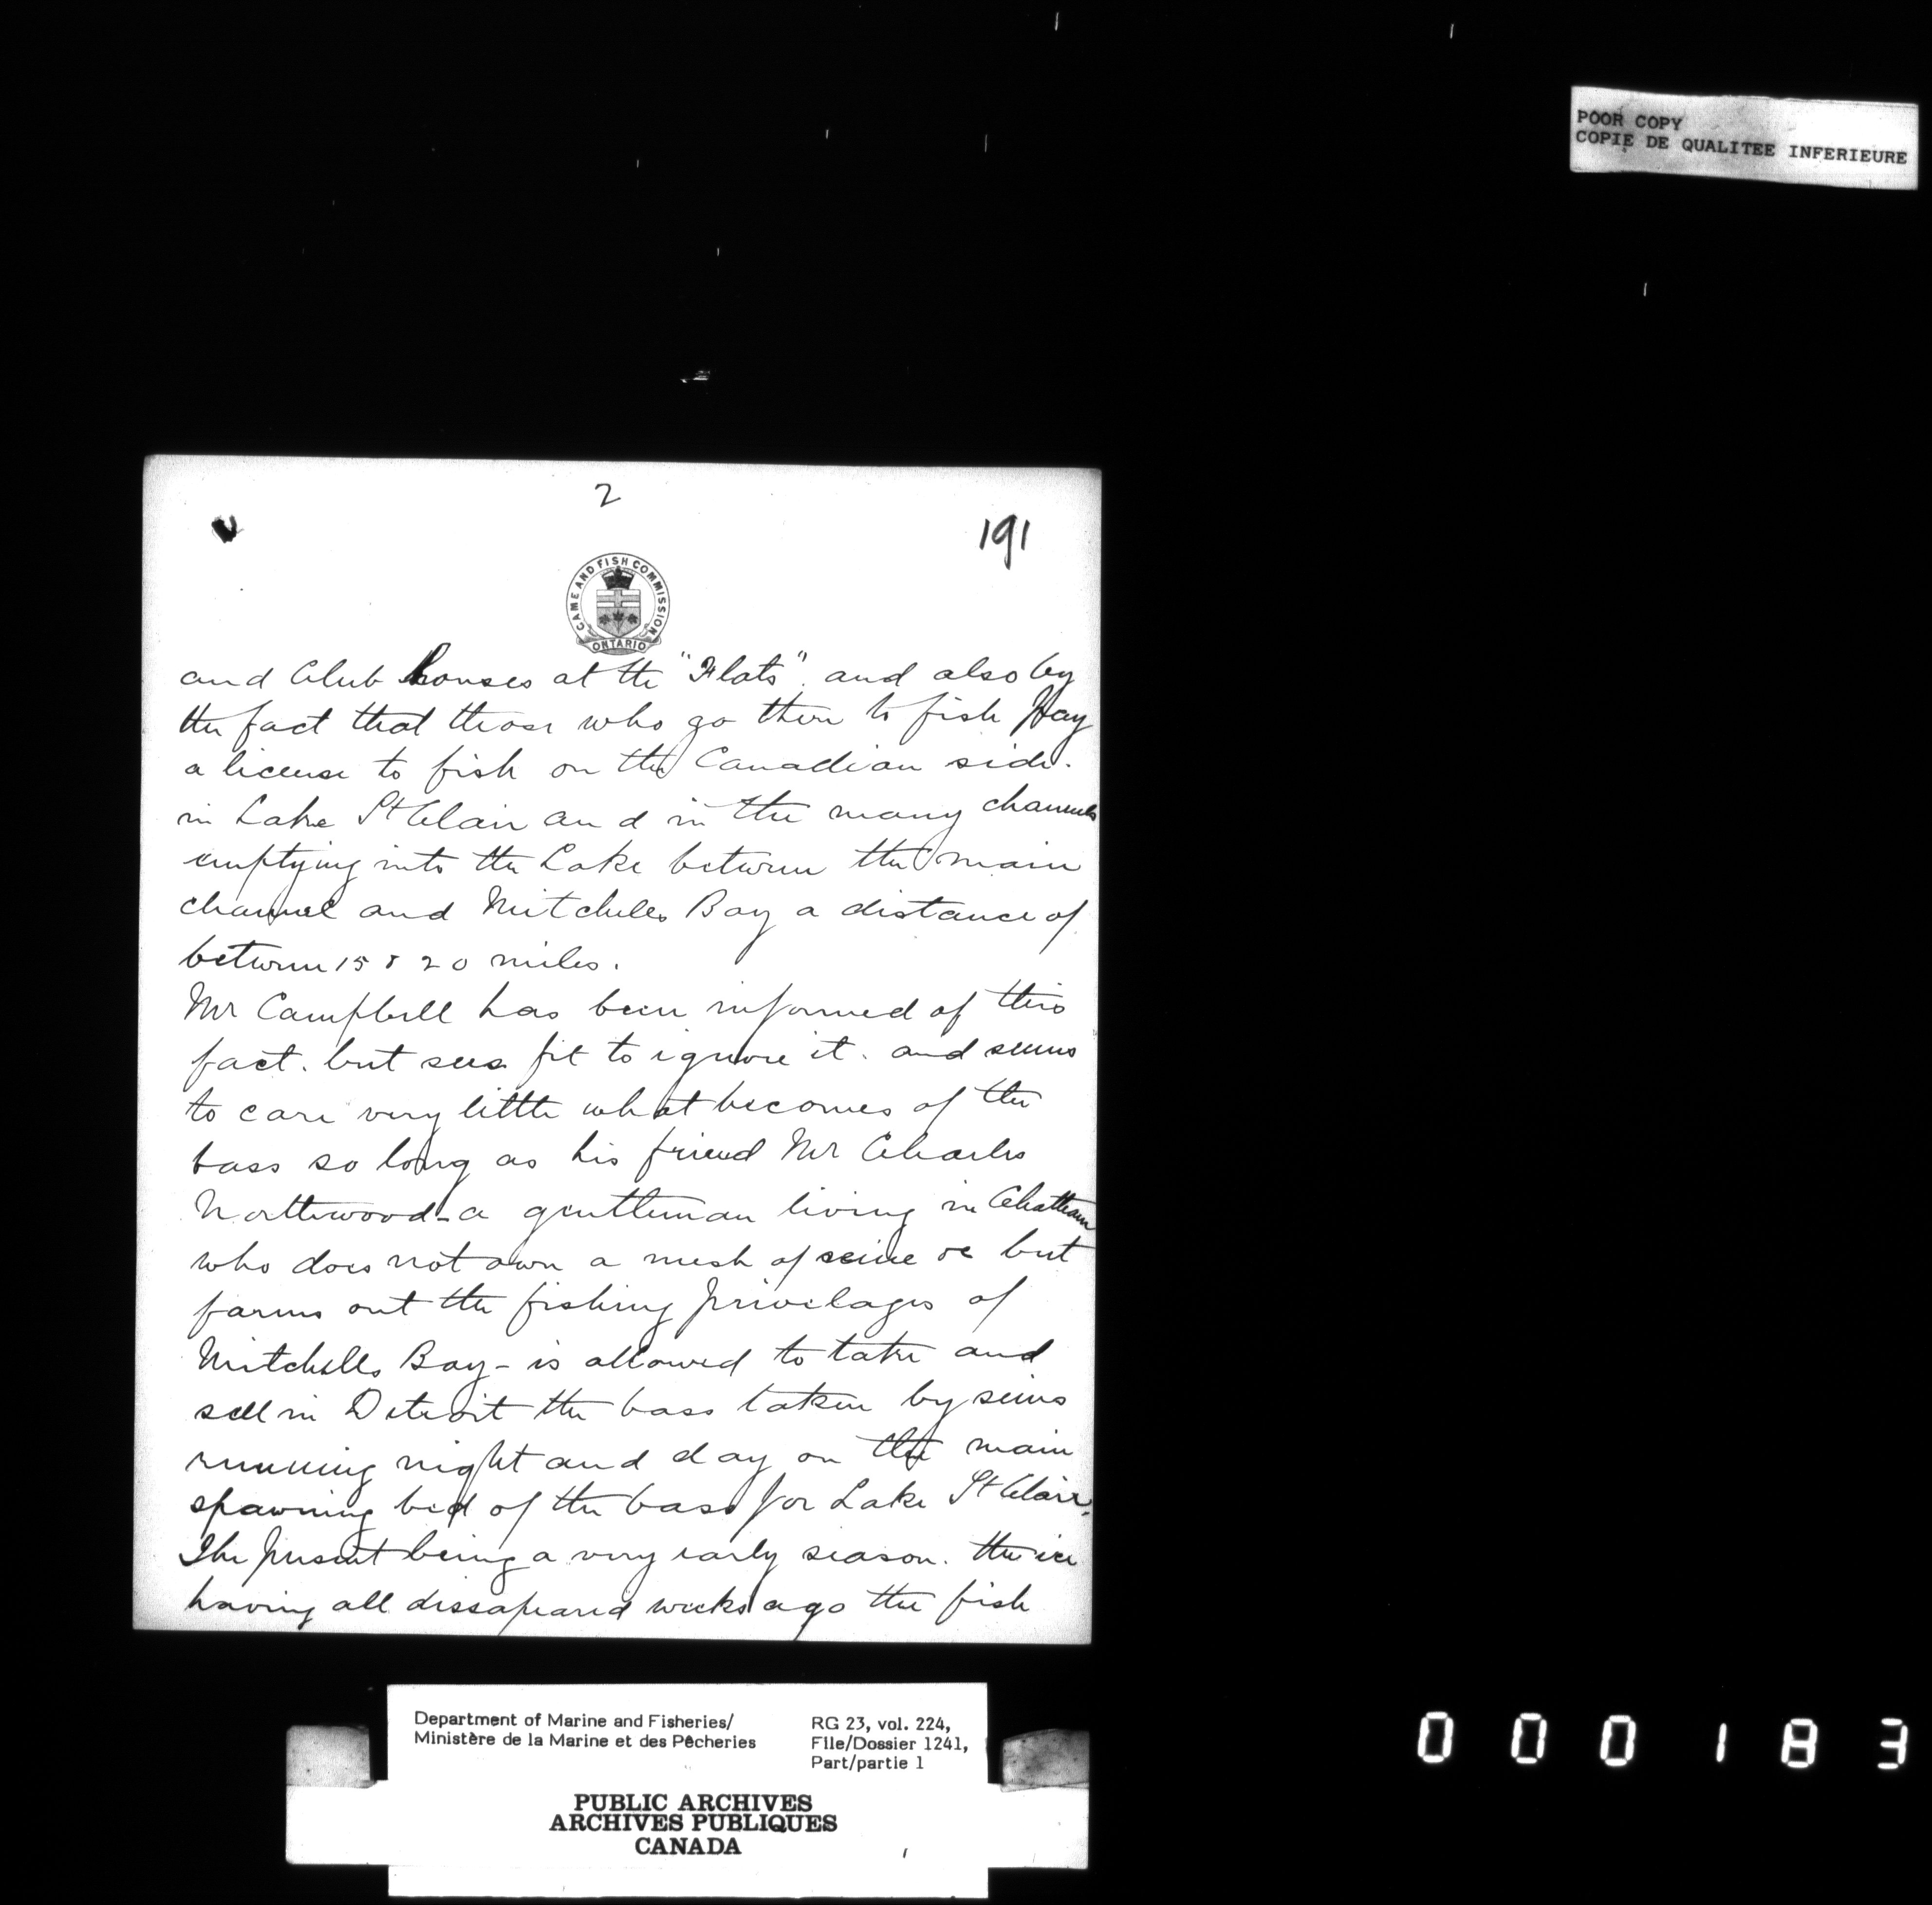 POOR COPY
COPIE DE QUALITEE INFERIEURE
2
191
GAME AND FISH COMMISSION
ONTARIO
and Club houses at the "Flats". and also by
the fact that those who go there to fish pay
a license to fish on the Canadian side.
in Lake St Clair and in the many channels
emptying into the Lake between the main
channel and Mitchells Bay a distance of
between 15 & 20 miles.
Mr Campbell has been informed of this
fact. but sees fit to ignore it. and seems
to care very little what becomes of the
bass so long as his friend Mr Charles
Northwood - a gentleman living in Chatham
who does not own a mesh of seine or but
farms out the fishing privilages of
Mitchells Bay - is allowed to take and
sell in Detroit the bass taken by seins
running night and day on the main
spawning bed of the bass for Lake St Clair.
The present being a very early season. the ice
having all dissapeared weeks ago the fish
Department of Marine and Fisheries/
Ministère de la Marine et des Pêcheries
RG 23, vol. 224,
File/Dossier 1241,
Part/partie 1
PUBLIC ARCHIVES
ARCHIVES PUBLIQUES
CANADA
000183